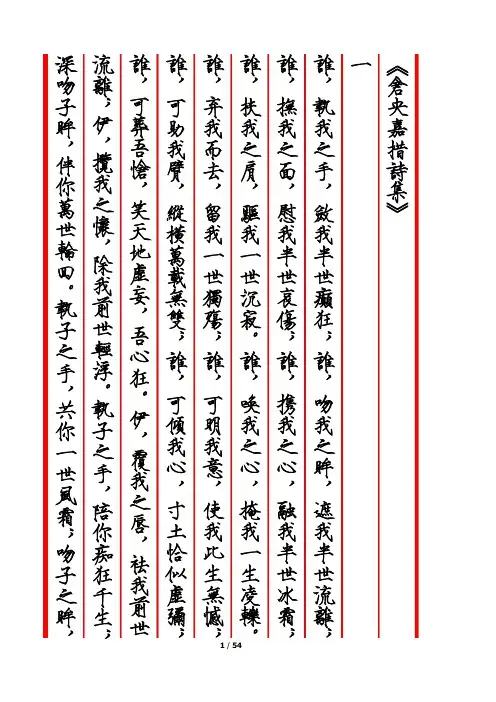 《倉央嘉措詩集》
一
誰，執我之手，斂我半世癲狂；誰，吻我之眸，遮我半世流離；
誰，撫我之面，慰我半世哀傷；誰，携我之心，融我半世冰霜；
誰，扶我之肩，驅我一世沉寂。誰，喚我之心，掩我一生凌轢。
誰，弃我而去，留我一世獨殤；誰，可明我意，使我此生無憾；
誰，可助我臂，縱橫萬載無雙；誰，可傾我心，寸土恰似虛彌；
誰，可葬吾愴，笑天地虛妄，吾心狂。伊，覆我之唇，袪我前世
流離；伊，攬我之懷，除我前世輕浮。執子之手，陪你痴狂千生；
深吻子眸，伴你萬世輪回。執子之手，共你一世風霜；吻子之眸，
1 / 54